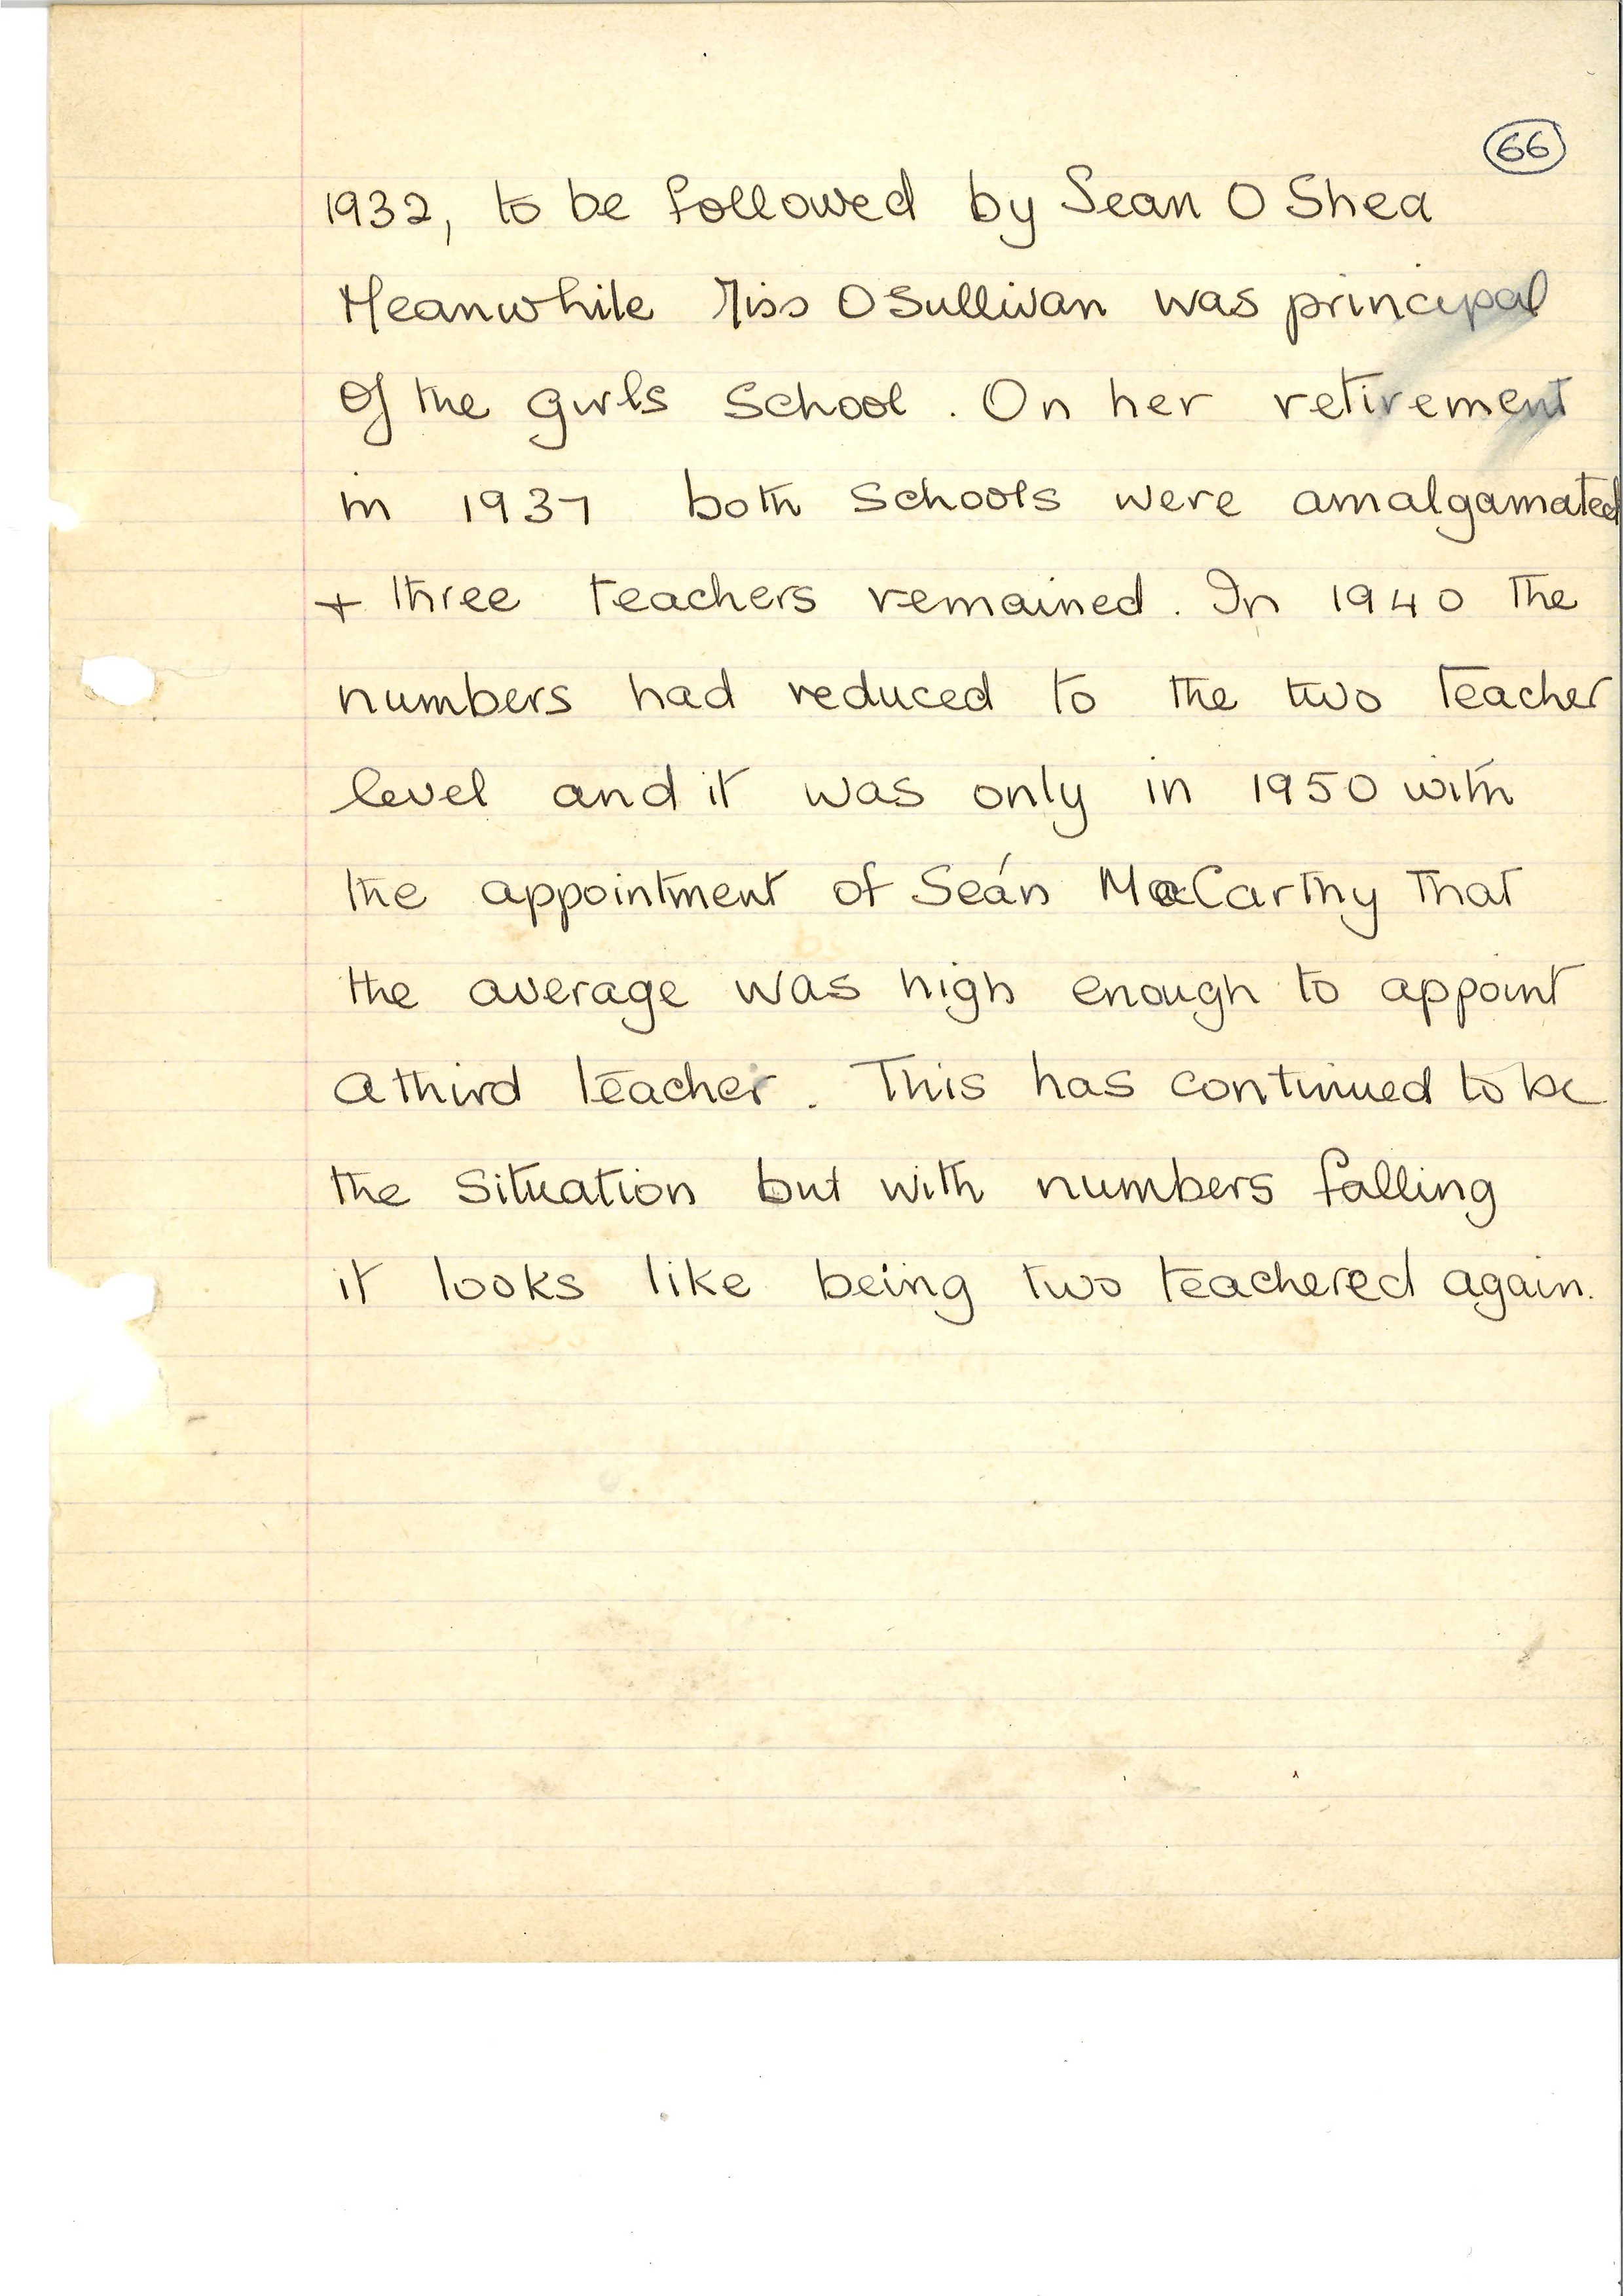 66
1932, to be followed by Sean O Shea
Meanwhile Miss O Sullivan was principal
of the girls school. On her retirement
in 1937 both schools were amalgamated
+ three teachers remained. In 1940 the
numbers had reduced to the two teacher
level and it was only in 1950 with
the appointment of Seán MacCarthy that
the average was high enough to appoint
a third teacher. This has continued to be
the situation but with numbers falling
it looks like being two teachered again.